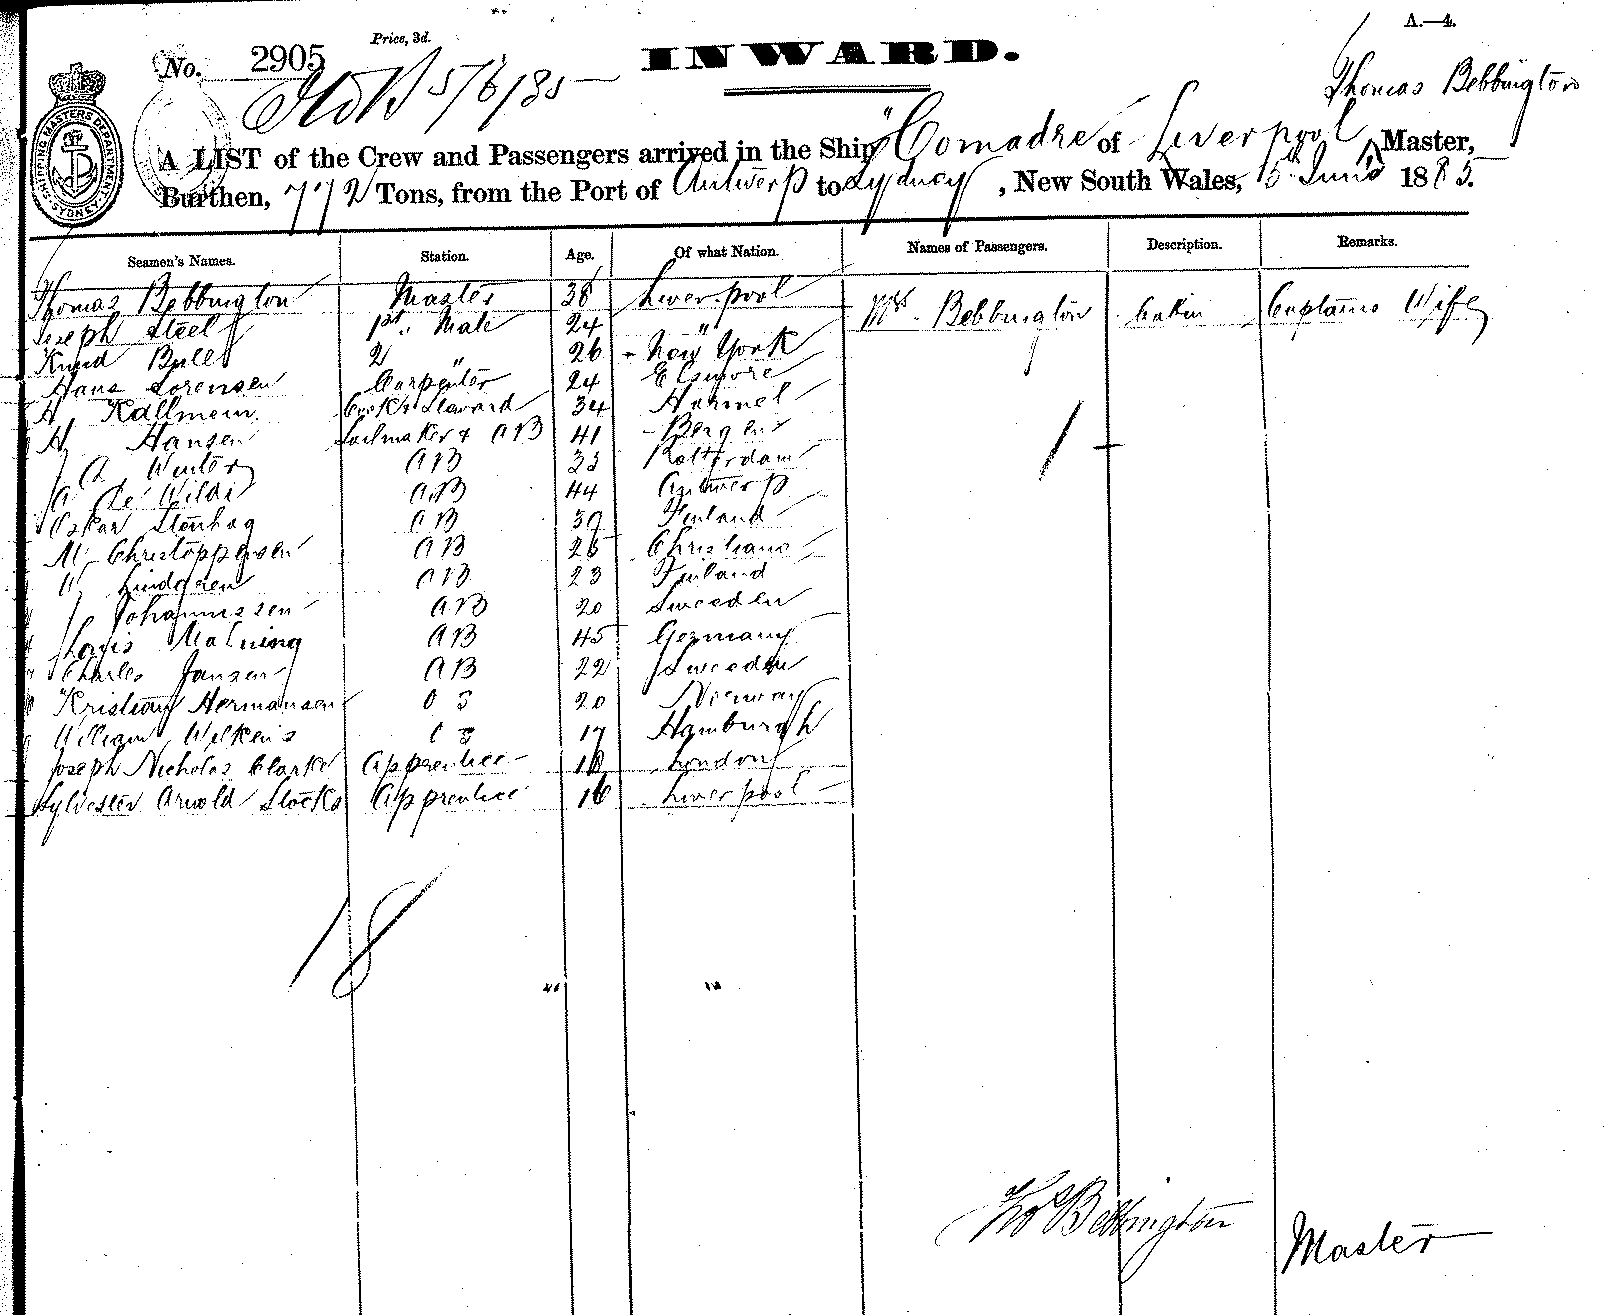 A.—4.
Price, 3d.
No. 2905
INWARD.
5/6/85
Thomas Bebbington
SHIPPING MASTERS DEPARTMENT SYDNEY
A LIST of the Crew and Passengers arrived in the Ship "Comadre" of Liverpool, Master,
Burthen, 772 Tons, from the Port of Antwerp to Sydney, New South Wales, 5th June 1885.
Seamen's Names. Station. Age. Of what Nation. Names of Passengers. Description. Remarks.
Thomas Bebbington Master 38 Liverpool Mrs. Bebbington Cabin Captains Wife
Joseph Steel 1st. Mate 24 "
Knud 2 " 26 New York
Hans Sorensen Carpenter 24 Elsinore
H Kallmein Cook & Steward 34
H Hansen Sailmaker & AB 41 Bergen
Winter AB 33 Rotterdam
A de Wilde AB 44 Antwerp
Oskar Stenhag AB Finland
M Christoppersen AB 25
Lindgren AB 23 Finland
J Johannissen AB 20 Sweeden
Louis AB 45 Germany
Charles Jansen AB 22 Sweeden
Kristian Hermansen O S 20 Norway
William Wilkens O S 17 Hamburgh
Joseph Nicholas Clarke Apprentice London
Sylvester Arnold Stocks Apprentice 16 Liverpool
1
18
Thos Bebbington Master